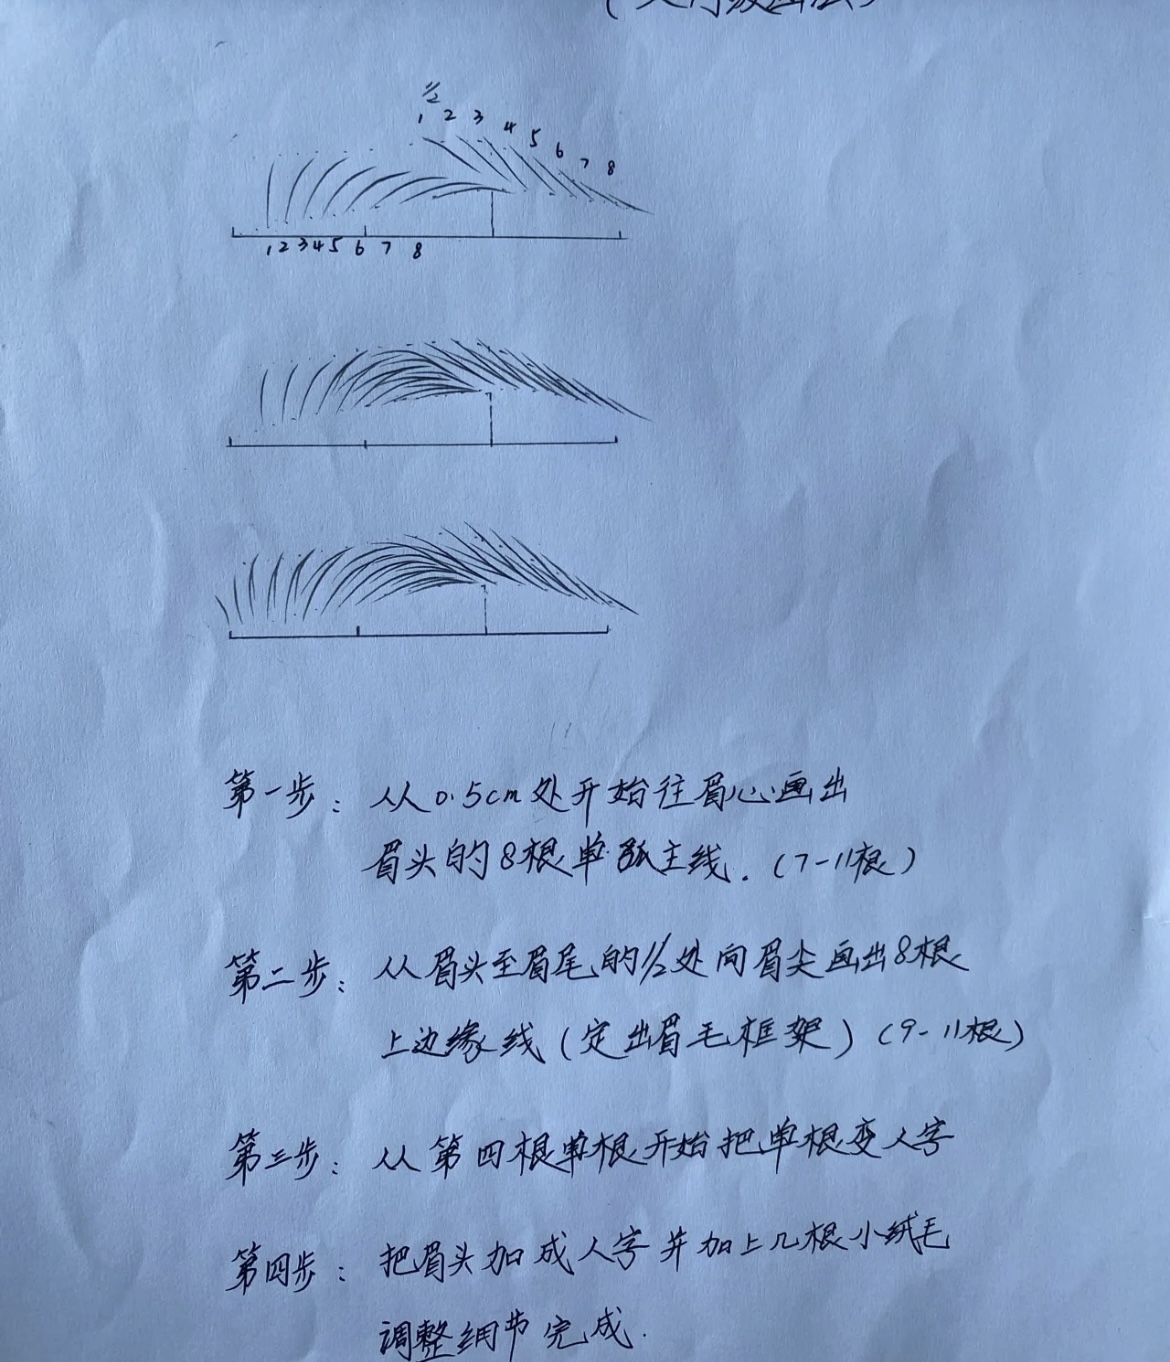 1/2
1 2 3 4 5 6 7 8
1 2 3 4 5 6 7 8
第一步：从0.5cm处开始往眉心画出
眉头的8根单弧主线.（7-11根）
第二步：从眉头至眉尾的1/2处向眉尖画出8根
上边缘线（定出眉毛框架）（9-11根）
第三步：从第四根单根开始把单根变人字
第四步：把眉头加成人字并加上几根小绒毛
调整细节完成.